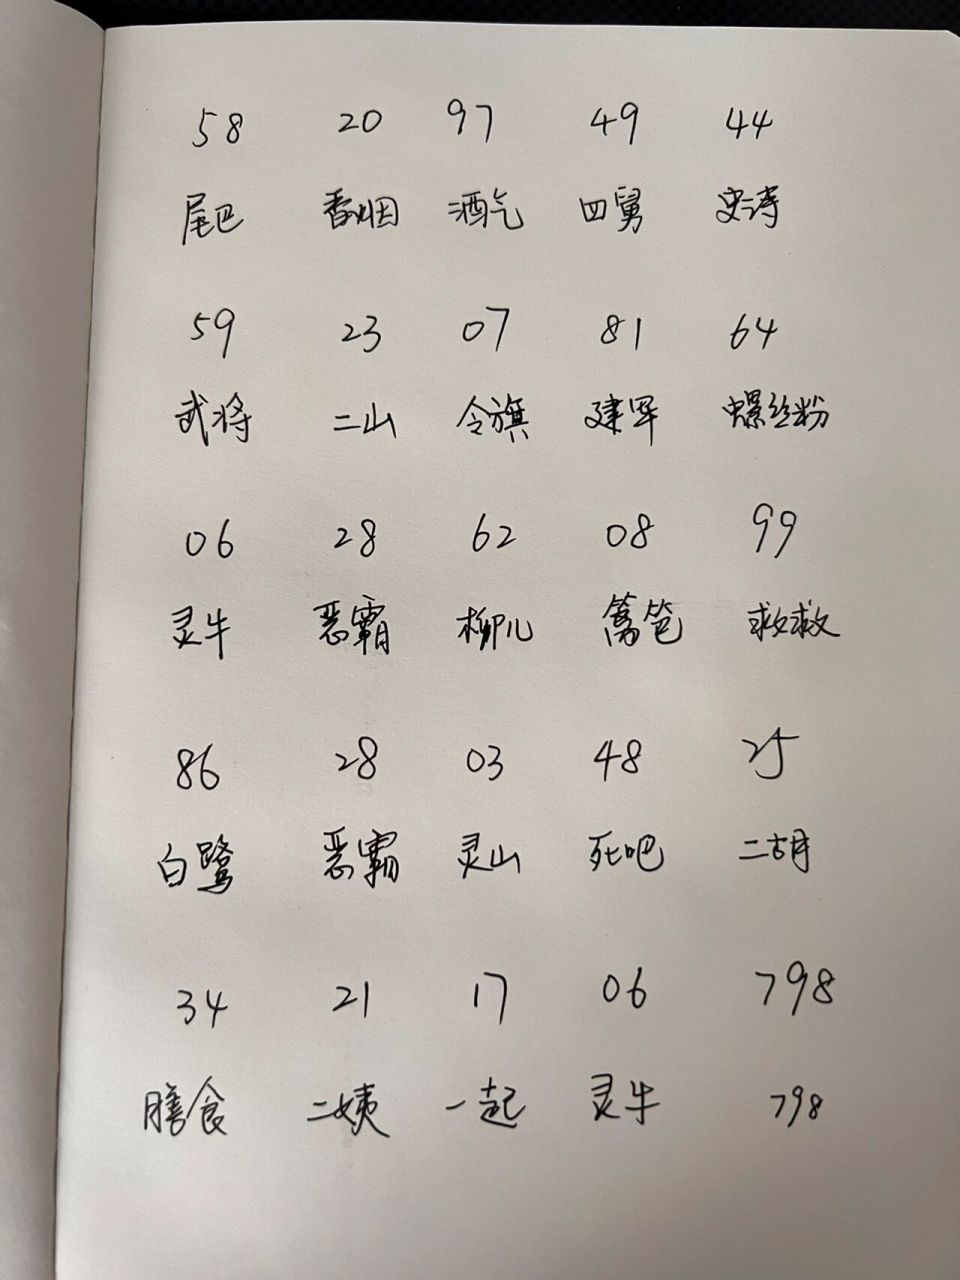 58 20 97 49 44
尾巴 香烟 酒气 四舅 史诗
59 23 07 81 64
武将 二山 令旗 建军 螺丝粉
06 28 62 08 99
灵牛 恶霸 柳儿 篱笆 救救
86 28 03 48 25
白鹭 恶霸 灵山 死吧 二胡
34 21 17 06 798
膳食 二姨 一起 灵牛 798